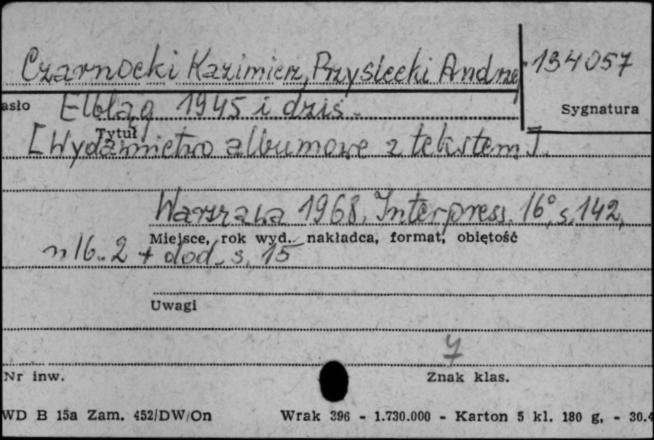 Czarnocki Kazimierz, Przysiecki Andrzej
134057
asło Elbląg 1945 i dziś.
Sygnatura
Tytuł
[Wydawnictwo albumowe z tekstem].
Warszawa 1968. Interpress. 16°, s. 142,
Miejsce, rok wyd., nakładca, format, objętość
nlb. 2 + dod. s. 15
Uwagi
7
Nr inw.
Znak klas.
WD B 15a Zam. 452/DW/On Wrak 396 - 1.730.000 - Karton 5 kl. 180 g. - 30.4